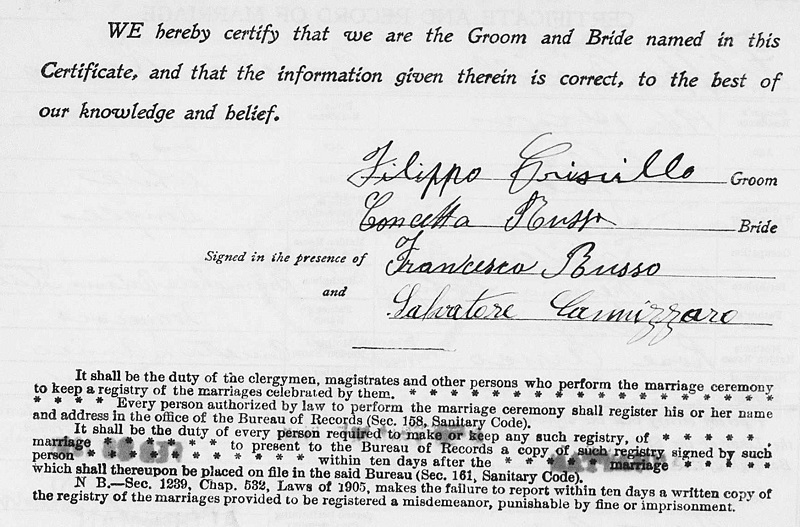 WE hereby certify that we are the Groom and Bride named in this
Certificate, and that the information given therein is correct, to the best of
our knowledge and belief.
Filippo Crisiullo Groom
Concetta Russo Bride
Signed in the presence of Francesco Russo
and Salvatore Cannizzaro
It shall be the duty of the clergymen, magistrates and other persons who perform the marriage ceremony
to keep a registry of the marriages celebrated by them. * * * * * * * * * * * * * * * * *
* * * * Every person authorized by law to perform the marriage ceremony shall register his or her name
and address in the office of the Bureau of Records (Sec. 158, Sanitary Code).
It shall be the duty of every person required to make or keep any such registry, of * * * * * ,
marriage * * * * * * * to present to the Bureau of Records a copy of such registry signed by such
person * * * * * * * * * * within ten days after the * * * * * marriage * * * * *
which shall thereupon be placed on file in the said Bureau (Sec. 161, Sanitary Code).
N B.—Sec. 1239, Chap. 532, Laws of 1905, makes the failure to report within ten days a written copy of
the registry of the marriages provided to be registered a misdemeanor, punishable by fine or imprisonment.